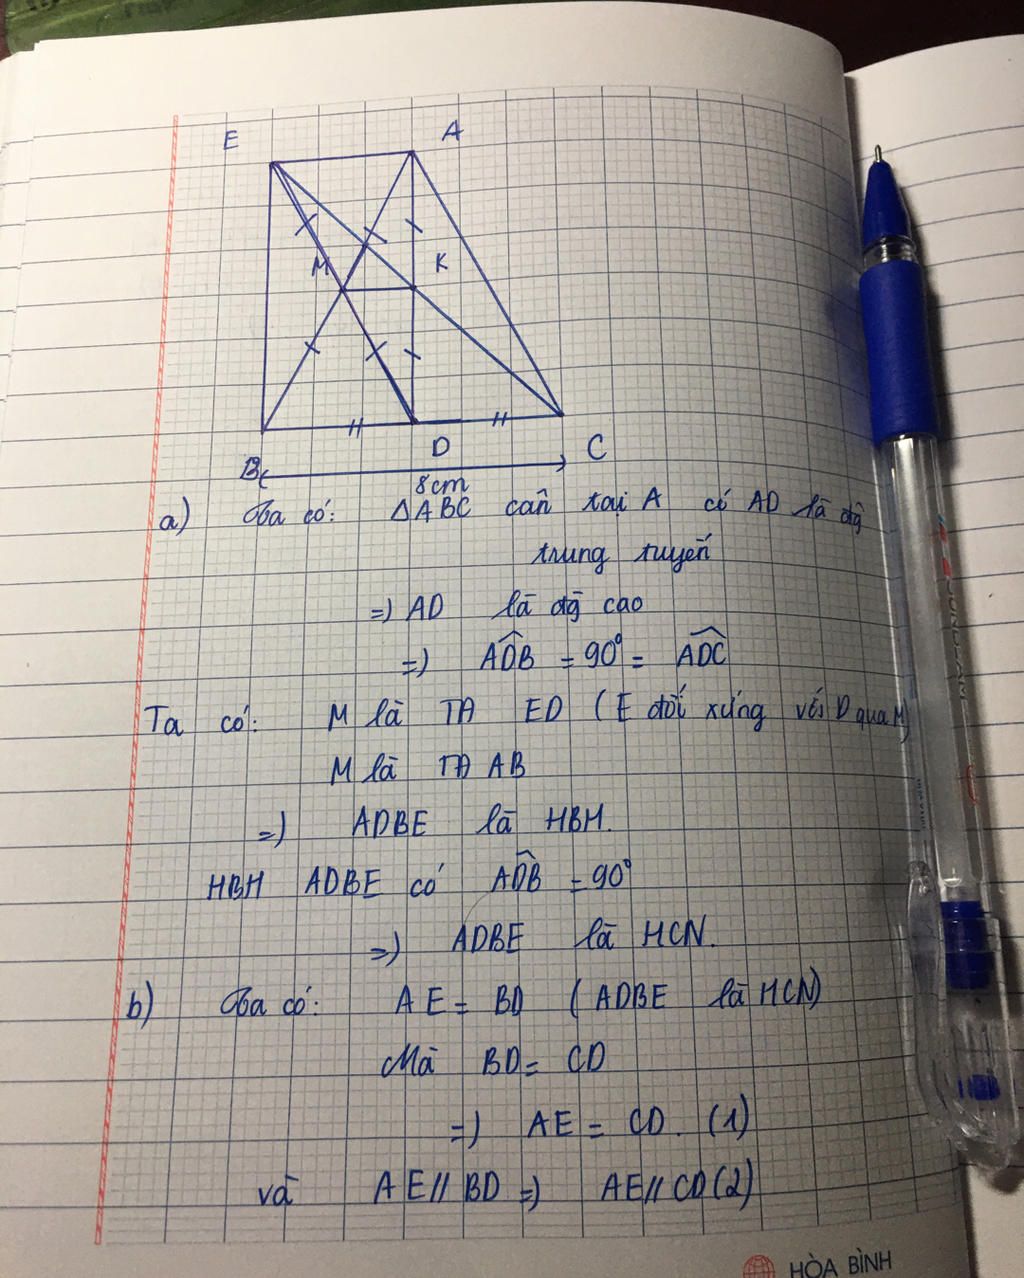 E A
M K
B D C
8cm
a) Ta có: △ABC cân tại A có AD là đg
trung tuyến
=) AD là đg cao
=) ADB = 90° = ADC
Ta có: M là TĐ ED (E đối xứng với D qua M)
M là TĐ AB
=) ADBE là HBH.
HBH ADBE có ADB = 90°
=) ADBE là HCN.
b) Ta có: AE = BD (ADBE là HCN)
Mà BD = CD
=) AE = CD. (1)
và AE // BD =) AE // CD (2)
HÒA BÌNH